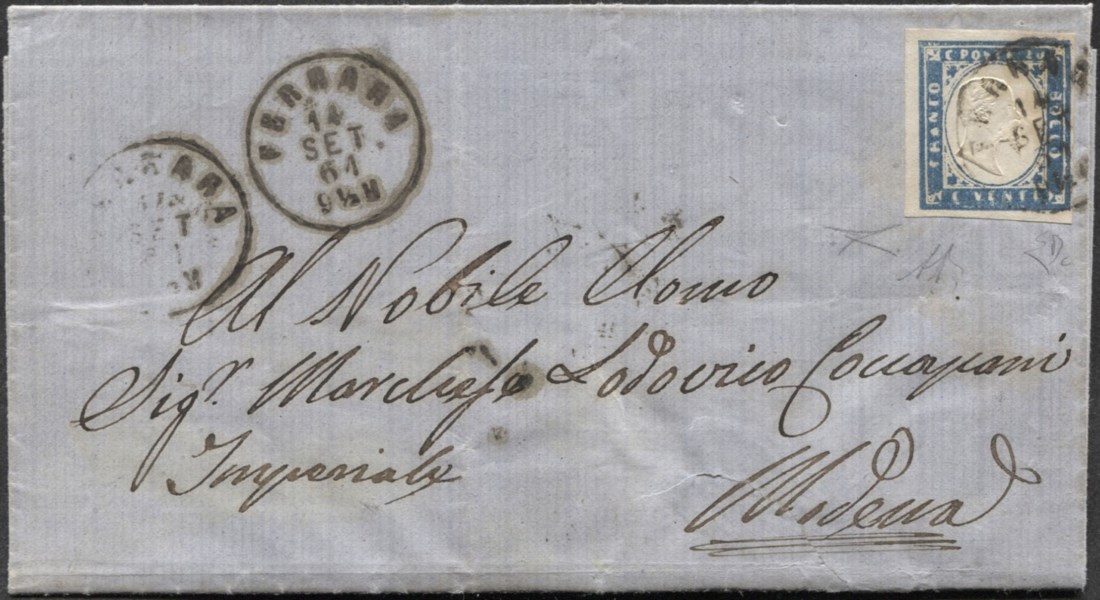 FERRARA
14
SET.
61
9½M
RARA
SET
M
FRANCO
C POSTE 20
BOLLO
C VENTI
SET
Al Nobile Uomo
Sigr. Marchese Lodovico Coccapani
Imperiale
Modena